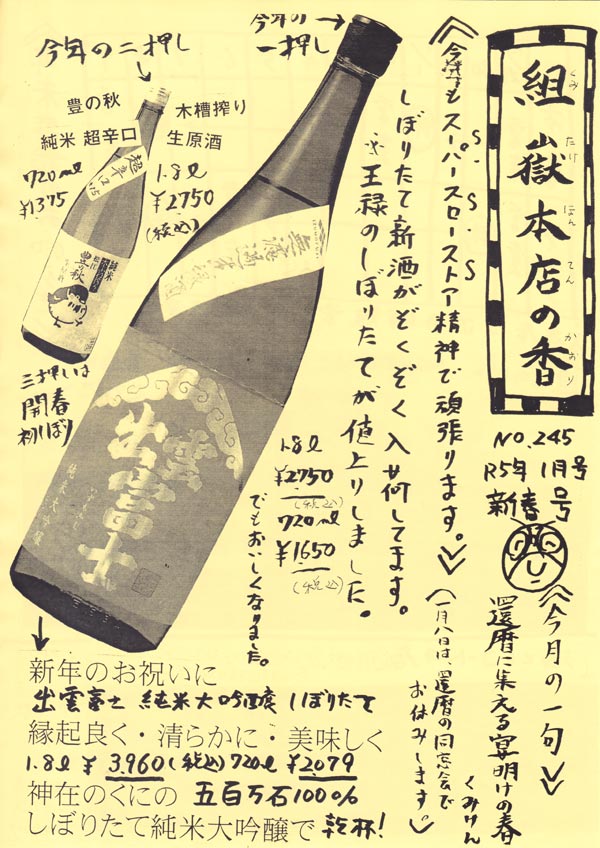 組嶽本店の香
くみ たけ ほん てん かおり
NO.245
R5年 1月号
新春号
《今月の一句》
還暦に集える宴明けの春
くみけん
《今年もスーパースローストアー精神で頑張ります。》
S.S.S
(一月八日は、還暦の同窓会で
お休みします。)
しぼりたて新酒がぞくぞく入荷してます。
※王禄のしぼりたてが値上りしました。
でもおいしくなりました。
1.8ℓ
¥2750
(税込)
720mℓ
¥1650
(税込)
今年の
一押し
今年の二押し
豊の秋
木槽搾り
純米 超辛口
生原酒
720mℓ
¥1375
1.8ℓ
¥2750
(税込)
超辛口
純米
豊の秋
三押しは
開春
初しぼり
無濾過生原酒
出雲富士
純米大吟醸
新年のお祝いに
出雲富士 純米大吟醸 しぼりたて
縁起良く・清らかに・美味しく
1.8ℓ ¥3,960(税込) 720mℓ ¥2079
神在のくにの 五百万石100%
しぼりたて純米大吟醸で 乾杯!